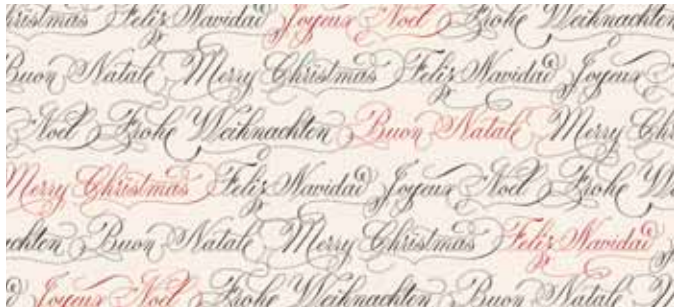 Christmas Feliz Navidad Joyeux Noel Frohe Weihnachten
Buon Natale Merry Christmas Feliz Navidad Joyeux
Noel Frohe Weihnachten Buon Natale Merry Chr
Merry Christmas Feliz Navidad Joyeux Noel Frohe We
chten Buon Natale Merry Christmas Feliz Navidad
Joyeux Noel Frohe Weihnachten Buon Natale